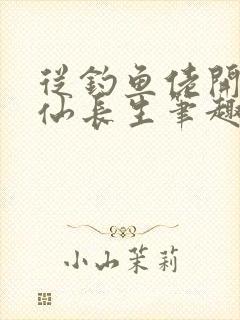 從釣魚佬開
仙長生筆趣
小山茉莉